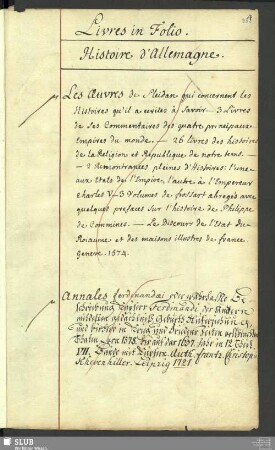 Livres in Folio.
Histoire d'Allemagne.
Les Œuvres de Sleidan qui concernent les
Histoires qu'il a ecrites à Savoir — 3 Livres
de Ses Commentaires des quatre principaux
Empires du monde — 26 livres des histoires
de la Religion et Republique de notre tems.
— 2 Remontrances pleines d'Histoires l'une
aux Etats de l'Empire, l'autre à l'Empereur
Charles V. 3 Volumes de froissart abregés avec
quelques prefaces Sur l'histoire de Philippe
de Commines. — Le Discours de l'Estat du
Roiaume et des maisons illustres de france.
Geneve. 1574.
Annales ferdinandei oder wahrhaffte Be
schreibung Kaysers Ferdinandi des Andern
mildesten
und
Thaten von 1578. bis auf das 1637. Jahr in 12 Theil.
VII. Bände mit Kupfern. Auth. frantz Christoph
Khevenhiller. Leipzig 1721.
SLUB